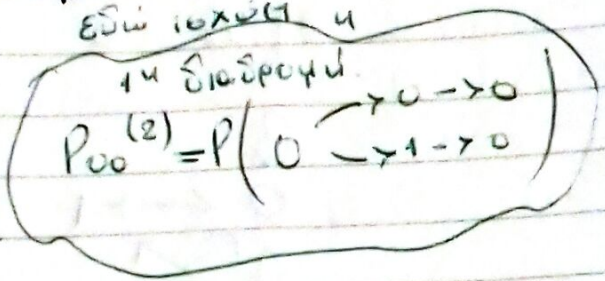 εδώ ισχύει η
1η διαδρομή.
P₀₀⁽²⁾ = P( 0 → 0 → 0
→ 1 → 0 )